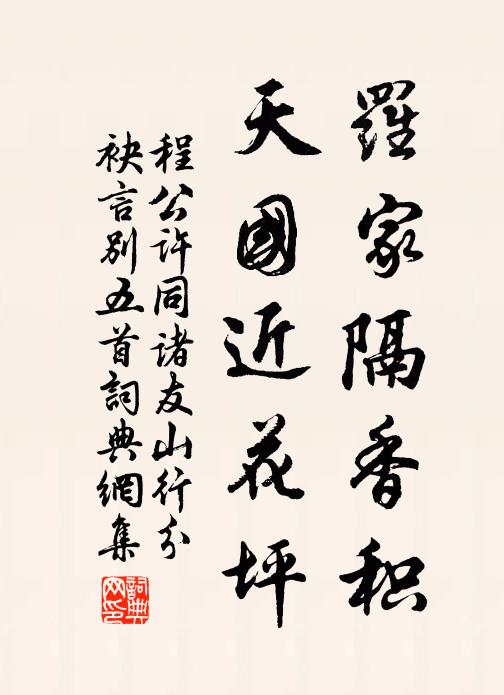 羅家隔香积
天國近花坪
程公許同諸友山行分
袂言別五首詞典網集
詞典
网印